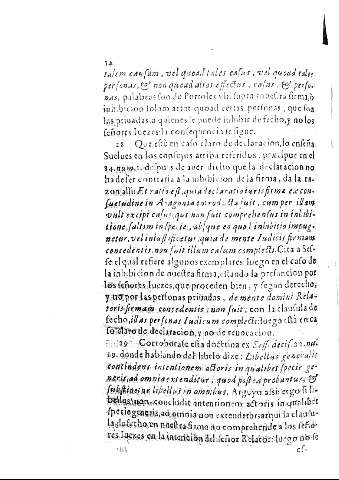 14
talem causam, vel quoad tales casus, vel quoad tales
personas, & non quoad alios effectus, casus, & perso-
nas, palabras son de Portoles vbi supra nuestra firma, è
inhibicion solam atat quoad certas personas, que son
las priuadas, a quienes se puede inhibir de fecho, y no los
señores Iuezes la consequencia se sigue.
28 Que esté en caso claro de declaracion, lo enseña
Suelues en los consejos arriba referidos, præcipue en el
24. num. 1. despues de auer dicho que la declaracion no
ha de ser contraria a la inhibicion de la firma, da la ra-
zon alli: Et ratio est, quia declaratio iurisfirmæ ex con-
suetudine in Aragonia introducta fuit, cum per illam
vult excipi casus, qui non fuit comprehensus in inhibi-
tione, saltem in specie, absque eo quod inhibitio impug-
netur, vel iniustificetur, quia de mente Iudicis firmam
concedentis, non fuit illum casum complecti. Cita a Sif-
se el qual refiere algunos exemplares: luego en el caso de
la inhibicion de nuestra firma, estando la presuncion por
los señores Iuezes, que proceden bien, y segun derecho,
y no por las personas priuadas, de mente domini Rela-
toris firmam concedentis, non fuit, con la clausula de
fecho, illas personas Iudicum complecti: luego està en ca-
so claro de declaracion, y no de reuocacion.
29 Corroborase esta doctrina ex Sesse decis. 101. num.
19. donde hablando del libelo dize: Libellus generalis
concludens intentionem actoris in qualibet specie ge-
neris, ad omnia extenditur, quod postea probantur, &
sustinetur libellus in omnibus. Arguyo assi: ergo si li-
bellus non concludit intentionem actoris in qualibet
specie generis, ad omnia non extendetur: sed qui la clausu-
la de fecho en nuestra firma no comprehende a los seño-
res Iuezes en la intencion del señor Relator: luego no se